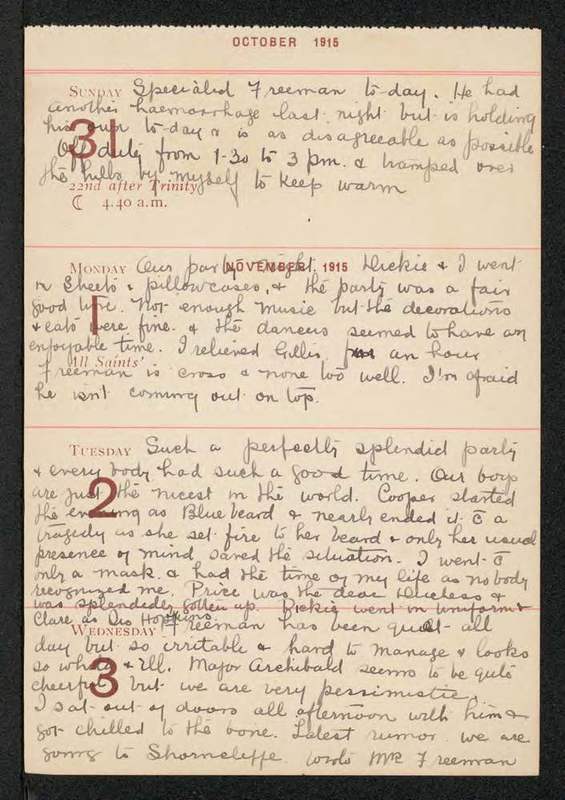 OCTOBER 1915
SUNDAY Specialed Freeman to-day. He had
another haemorrhage last night but is holding
his own to-day & is as disagreeable as possible
31
Off duty from 1-30 to 3 p.m. & tramped over
the hills by myself to keep warm
22nd after Trinity
☾ 4.40 a.m.
NOVEMBER 1915
MONDAY Our party night. Dickie & I went
in sheets & pillowcases, & the party was a fair
good time. Not enough music but the decorations
1
& eats were fine. & the dancers seemed to have an
enjoyable time. I relieved Gillis for an hour
All Saints'
Freeman is cross & none too well. I'm afraid
he isn't coming out on top.
TUESDAY Such a perfectly splendid party
& every body had such a good time. Our boys
are just the nicest in the world. Cooper started
2
the evening as Blue beard & nearly ended it c̄ a
tragedy as she set fire to her beard & only her usual
presence of mind saved the situation. I went c̄
only a mask & had the time of my life as no body
recognized me. Price was the dear &
was splendidly gotten up. Dickie went in uniform &
Clare as Dis Hopkins
WEDNESDAY Freeman has been quiet all
day but so irritable & hard to manage & looks
so white & ill. Major Archibald seems to be quite
3
cheerful but we are very pessimistic.
I sat out of doors all afternoon with him &
got chilled to the bone. Latest rumor we are
going to Shorncliffe. Wrote Mr Freeman